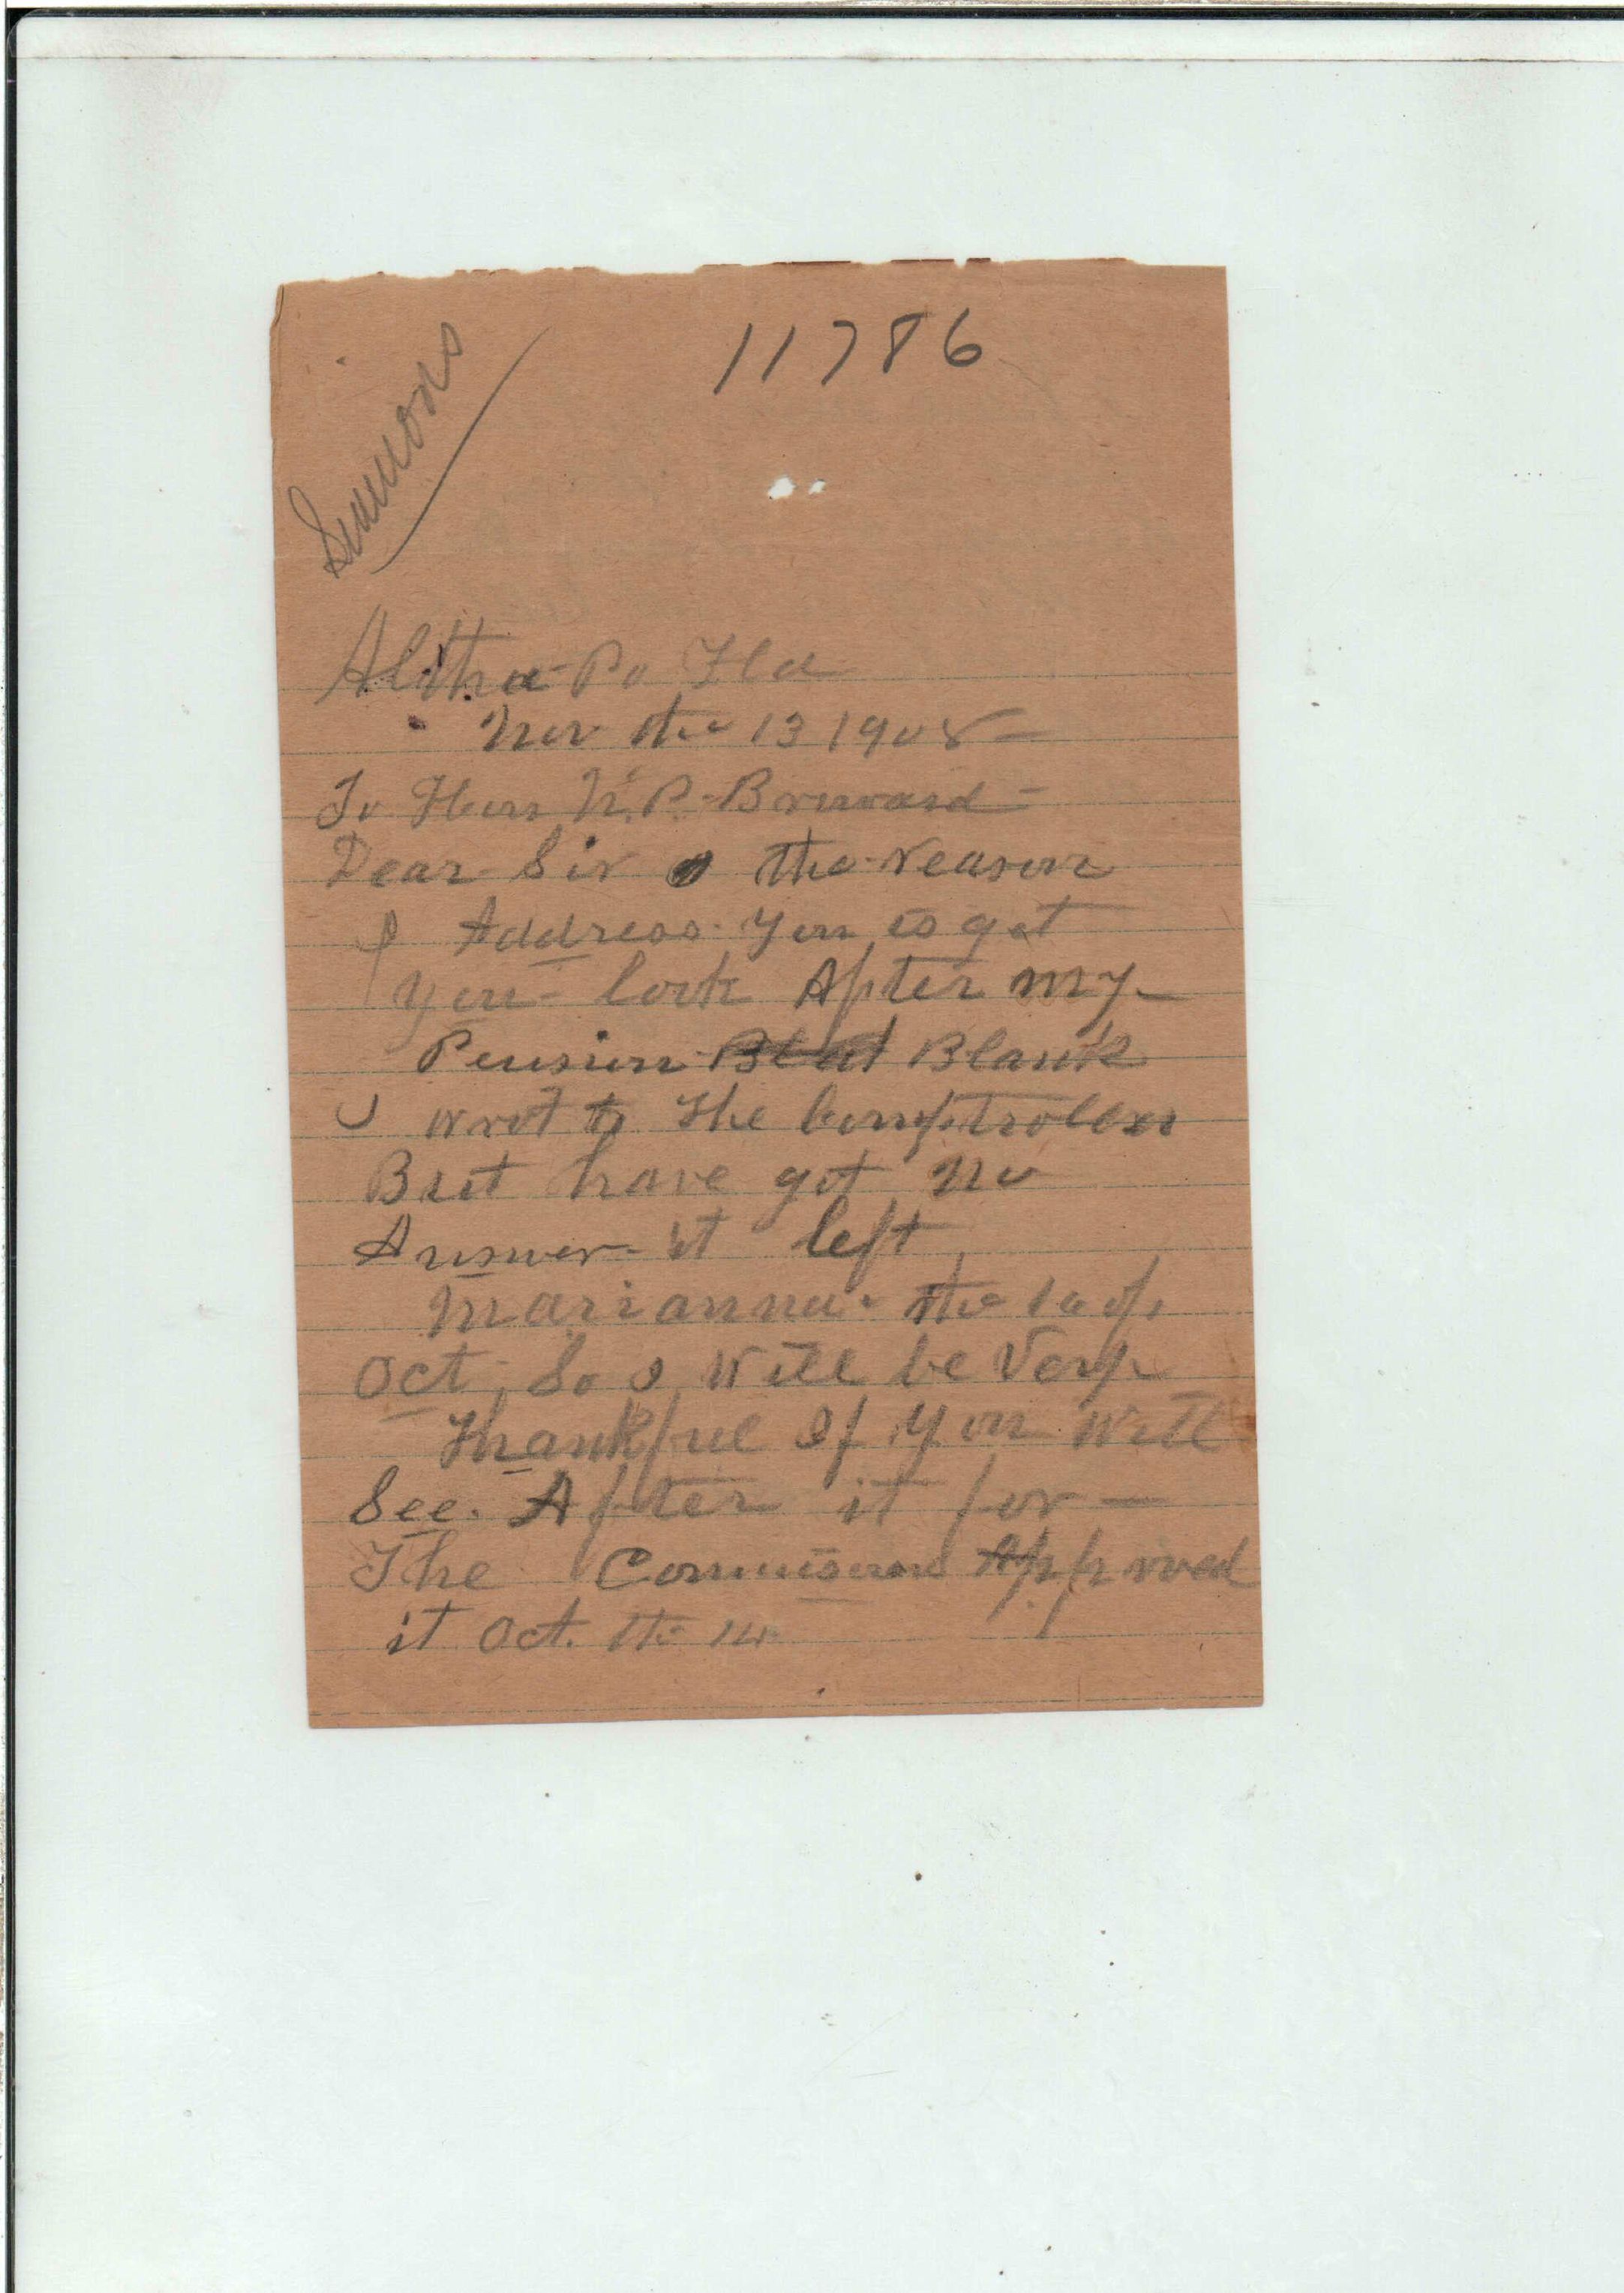 11786
Simmons
Altha Po Fla
Nov the 13 1908
To Hon N. P. Broward
Dear Sir the reason
I Address you is get
you look After my
Pension Blank
I wrot to The Comptroller
But have got no
Answer it left
Marianna the of
Oct, So I Will be Very
Thankful If you Will
See After it for
The Commisners Approved
it Oct. the